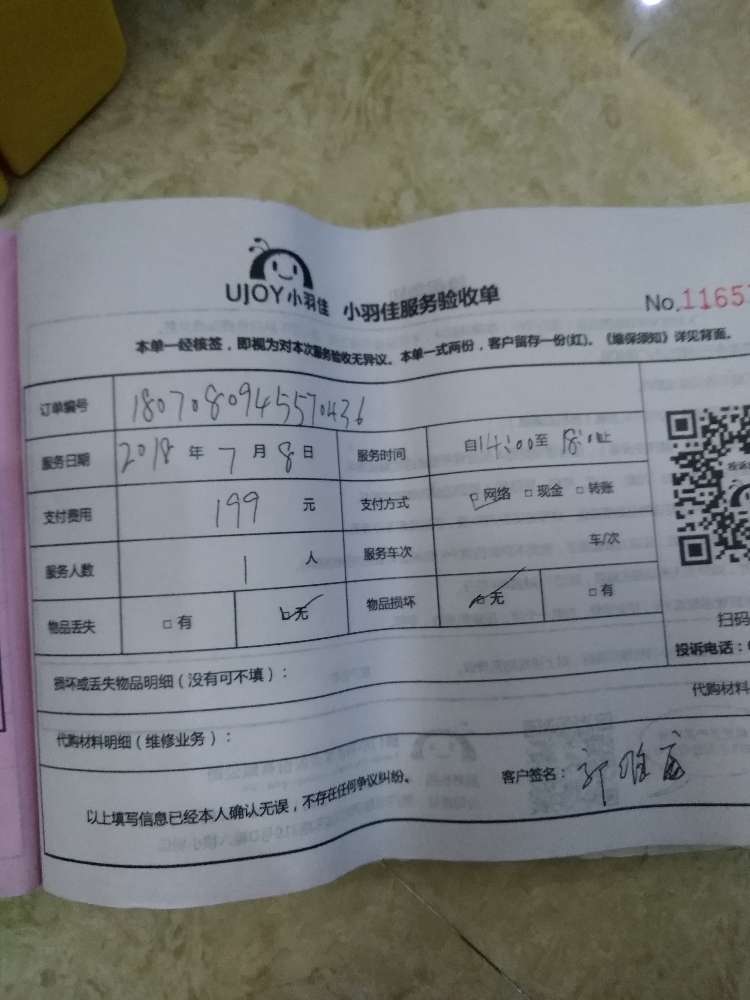 UJOY小羽佳 小羽佳服务验收单
No.1165
本单一经核签，即视为对本次服务验收无异议。本单一式两份，客户留存一份(红)。《维保须知》详见背面。
订单编号 1807080945570436
服务日期 2018 年 7 月 8 日 服务时间 自14:00至 18:止
支付费用 199 元 支付方式 □网络 □现金 □转账
服务人数 1 人 服务车次 车/次
物品丢失 □有 □无 物品损坏 □无 □有
扫码
投诉电话：
损坏或丢失物品明细（没有可不填）：
代购材料
代购材料明细（维修业务）：
以上填写信息已经本人确认无误，不存在任何争议纠纷。 客户签名：